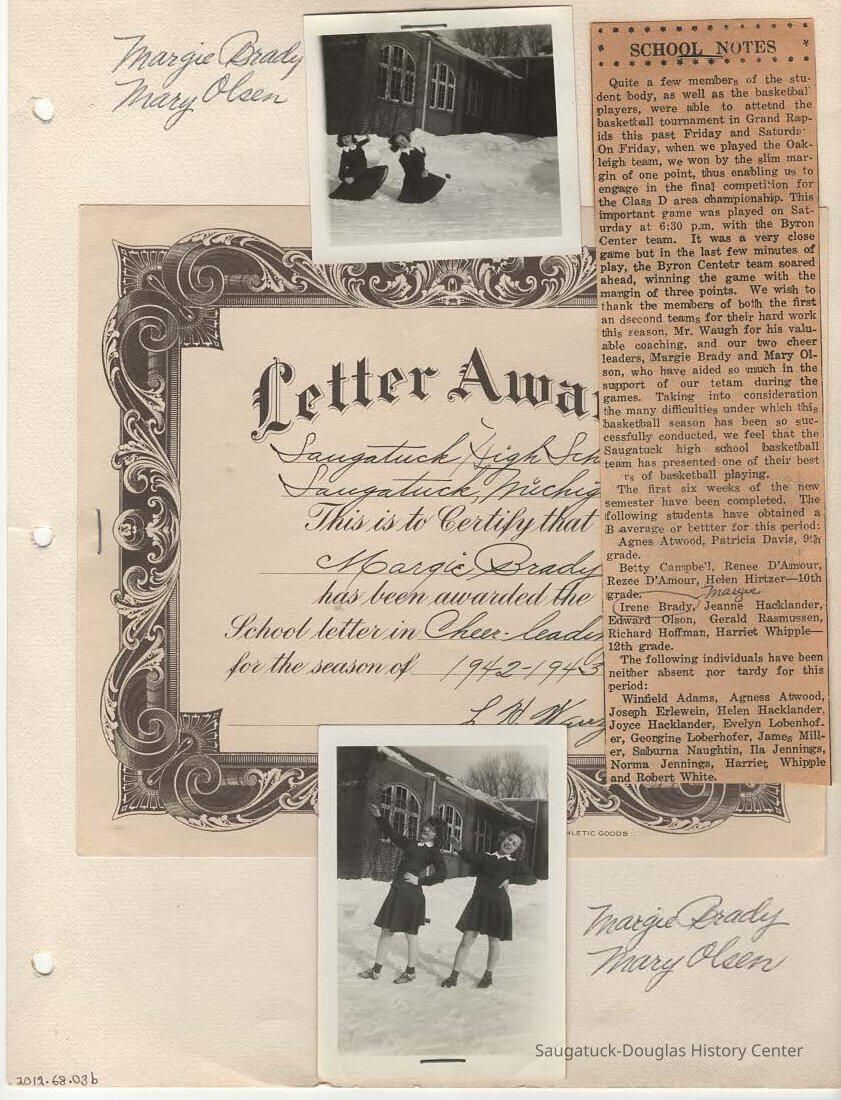 Margie Brady
Mary Olsen
SCHOOL NOTES
Quite a few members of the stu-
dent body, as well as the basketbal'
players, were able to attetnd the
basketball tournament in Grand Rap-
ids this past Friday and Saturda
On Friday, when we played the Oak-
leigh team, we won by the slim mar-
gin of one point, thus enabling us to
engage in the final competition for
the Class D area championship. This
important game was played on Sat-
urday at 6:30 p.m. with the Byron
Center team. It was a very close
game but in the last few minutes of
play, the Byron Centetr team soared
ahead, winning the game with the
margin of three points. We wish to
thank the members of both the first
an dsecond teams for their hard work
this season, Mr. Waugh for his valu-
able coaching, and our two cheer
leaders, Margie Brady and Mary Ol-
son, who have aided so much in the
support of our tetam during the
games. Taking into consideration
the many difficulties under which this
basketball season has been so suc-
cessfully conducted, we feel that the
Saugatuck high school basketball
team has presented one of their best
rs of basketball playing.
The first six weeks of the new
semester have been completed. The
following students have obtained a
B average or bettter for this period:
Agnes Atwood, Patricia Davis, 9th
grade.
Betty Campbe'l, Renee D'Amour,
Rezee D'Amour, Helen Hirtzer—10th
grade.
Margie
Irene Brady, Jeanne Hacklander,
Edward Olson, Gerald Rasmussen,
Richard Hoffman, Harriet Whipple—
12th grade.
The following individuals have been
neither absent nor tardy for this
period:
Winfield Adams, Agness Atwood,
Joseph Erlewein, Helen Hacklander,
Joyce Hacklander, Evelyn Lobenhof-
er, Georgine Loberhofer, James Mill-
er, Saburna Naughtin, Ila Jennings,
Norma Jennings, Harriet Whipple
and Robert White.
Letter Awa
Saugatuck High Sch
Saugatuck, Michig
This is to Certify that
Margie Brady
has been awarded the
School letter in Cheer-leadin
for the season of 1942-1943
L H Waug
HLETIC GOODS
Margie Brady
Mary Olsen
Saugatuck-Douglas History Center
2012.68.03b